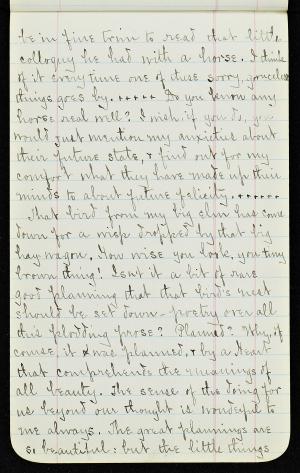 be in fine trim to read that little
colloquy he had with a horse. I think
of it every time one of these sorry, graceless
things goes by. . . . . . Do you know any
horse real well? I wish, if you do, you
would just mention my anxieties about
their future state, & find out for my
comfort what they have made up their
minds to about future felicity. . . . . . .
That bird from my big elm has come
down for a wisp dropped by that big
hay wagon. How wise you look, you tiny
brown thing! Isn't it a bit of rare
good planning that that bird's nest
should be set down - poetry over all
this plodding prose? Planned? Why, of
course it was planned, & by a Heart
that comprehends the meanings of
all beauty. The sense of this doing for
us beyond our thought is wonderful to
me always. The great plannings are
so beautiful: but the little things